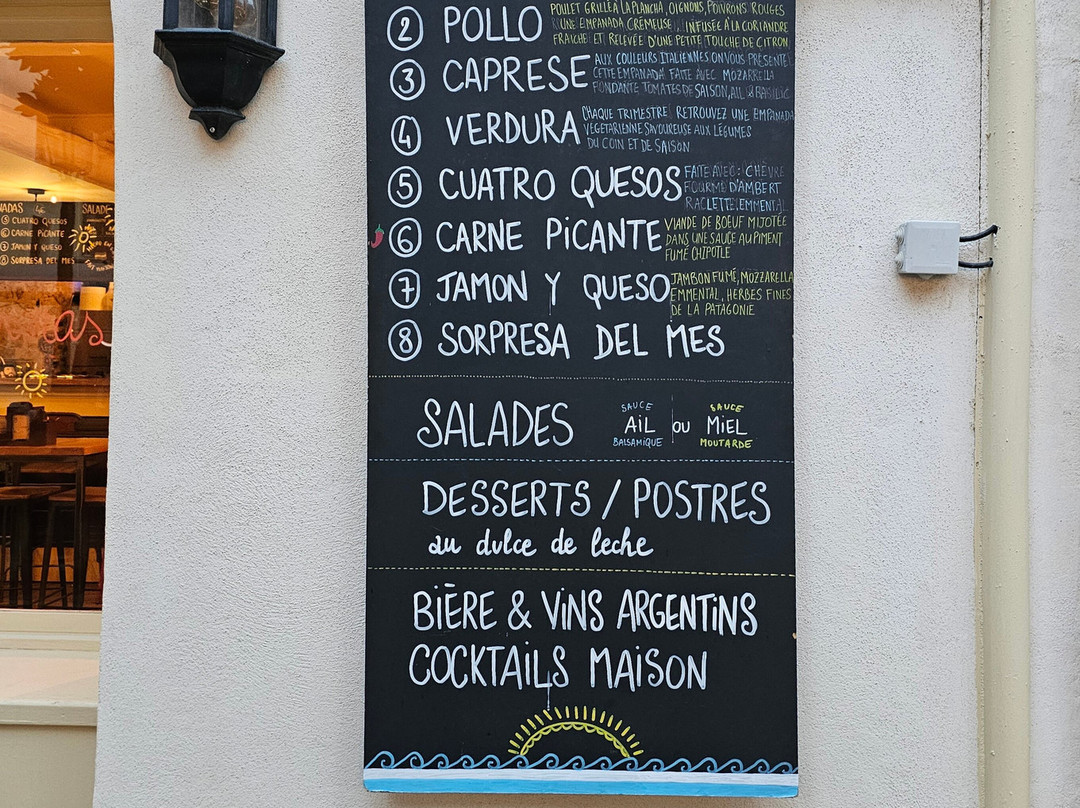 ② POLLO
POULET GRILLÉ À LA PLANCHA, OIGNONS, POIVRONS ROUGES
UNE EMPANADA CRÉMEUSE, INFUSÉE À LA CORIANDRE
FRAICHE ET RELEVÉE D'UNE PETITE TOUCHE DE CITRON
③ CAPRESE
AUX COULEURS ITALIENNES ON VOUS PRÉSENTE
CETTE EMPANADA FAITE AVEC MOZARRELLA
FONDANTE TOMATES DE SAISON, AIL & BASILIC
④ VERDURA
CHAQUE TRIMESTRE RETROUVEZ UNE EMPANADA
VÉGÉTARIENNE SAVOUREUSE AUX LÉGUMES
DU COIN ET DE SAISON
⑤ CUATRO QUESOS
FAITE AVEC: CHÈVRE
FOURME D'AMBERT
RACLETTE, EMMENTAL
⑥ CARNE PICANTE
VIANDE DE BOEUF MIJOTÉE
DANS UNE SAUCE AU PIMENT
FUMÉ CHIPOTLE
⑦ JAMON Y QUESO
JAMBON FUMÉ, MOZZARELLA
EMMENTAL, HERBES FINES
DE LA PATAGONIE
⑧ SORPRESA DEL MES
SALADES
SAUCE AIL BALSAMIQUE
ou
SAUCE MIEL MOUTARDE
DESSERTS / POSTRES
au dulce de leche
BIÈRE & VINS ARGENTINS
COCKTAILS MAISON
NADAS 4€ SALADE
⑤ CUATRO QUESOS
⑥ CARNE PICANTE
⑦ JAMON Y QUESO
⑧ SORPRESA DEL MES
as